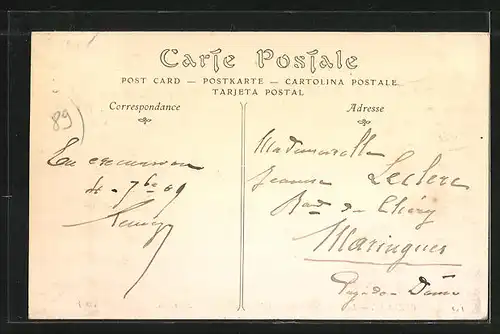 Carte Postale
POST CARD — POSTKARTE — CARTOLINA POSTALE
TARJETA POSTAL
Correspondance
Adresse
89
En excursion
4 - 7bre 09
Mademoiselle
Jeanne Leclerc
Maringues
Puy-de-Dôme